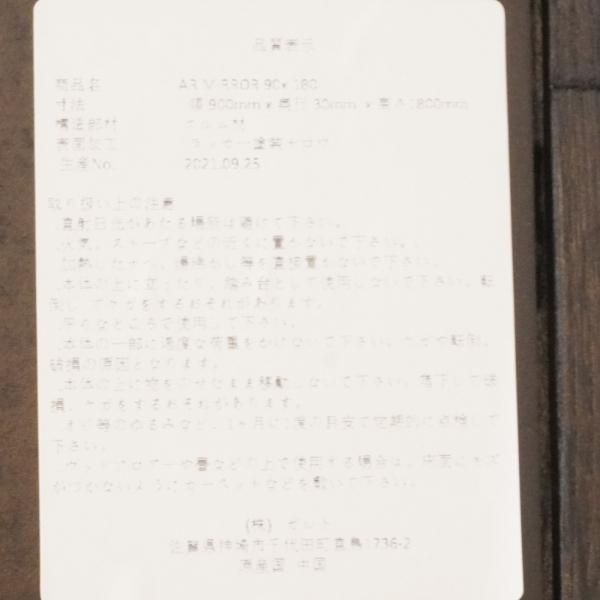 品質表示
商品名 AR MIRROR 90×180
寸法 幅 900mm × 奥行 30mm × 高さ1800mm
構造部材 エルム材
表面加工 ラッカー塗装
生産No. 2021.09.25
取り扱い上の注意
.直射日光があたる場所は避けて下さい。
.火気、ストーブなどの近くに置かないで下さい。
.加熱したナベ、湯沸かし等を直接置かないで下さい。
.本体の上に立ったり、踏み台として使用しないで下さい。転
倒してケガをするおそれがあります。
.平らなところで使用して下さい。
.本体の一部に過度な荷重をかけないで下さい。ケガや転倒、
破損の原因となります。
.本体の上に物をのせたまま移動しないで下さい。落下して破
損、ケガをするおそれがあります。
.ネジ等のゆるみなど、1ヶ月に1度の目安で定期的に点検して
下さい。
.ウッドフロアーや畳などの上で使用する場合は、床面にキズ
がつかないようにカーペットなどを敷いて下さい。
(株) ゼルト
佐賀県神埼市千代田町直鳥1736-2
原産国 中国